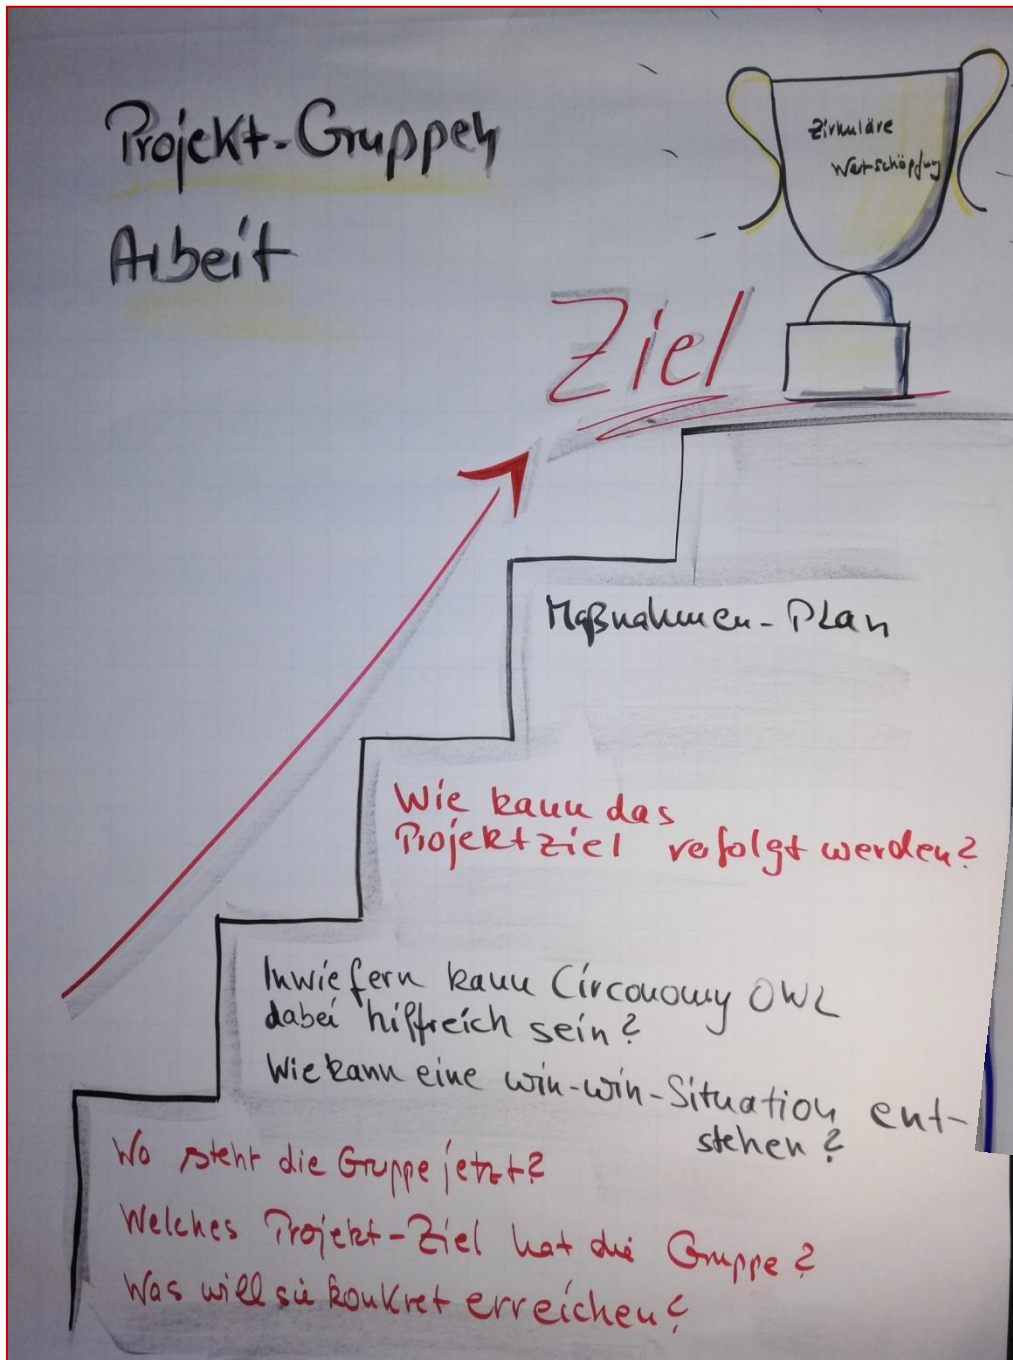 Projekt-Gruppen
Arbeit
Zirkuläre
Wertschöpfung
Ziel
Maßnahmen-Plan
Wie kann das
Projektziel verfolgt werden?
Inwiefern kann Circonomy OWL
dabei hilfreich sein?
Wie kann eine win-win-Situation ent-
stehen?
Wo steht die Gruppe jetzt?
Welches Projekt-Ziel hat die Gruppe?
Was will sie konkret erreichen?